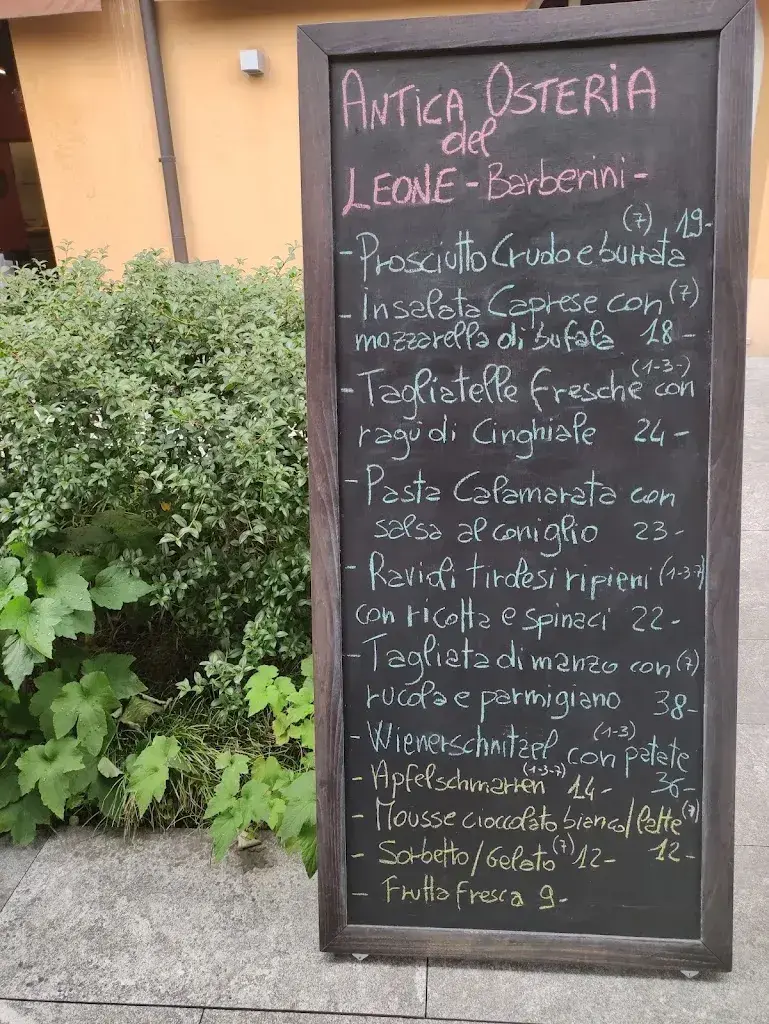 ANTICA OSTERIA
del
LEONE - Barberini -
(7) 19-
- Prosciutto Crudo e burrata
- insalata Caprese con (7)
mozzarella di bufala 18 -
- Tagliatelle fresche (1-3-) con
ragù di Cinghiale 24 -
- Pasta Calamarata con
salsa al coniglio 23 -
- Ravioli tirolesi ripieni (1-3-7)
con ricotta e spinaci 22 -
- Tagliata di manzo con (7)
rucola e parmigiano 38-
- Wienerschnitzel (1-3) con patate
- Apfelschmarren (1-3-7) 14 - 36-
- Mousse cioccolato bianco/latte (7)
- Sorbetto/Gelato (7) 12- 12-
- Frutta fresca 9-